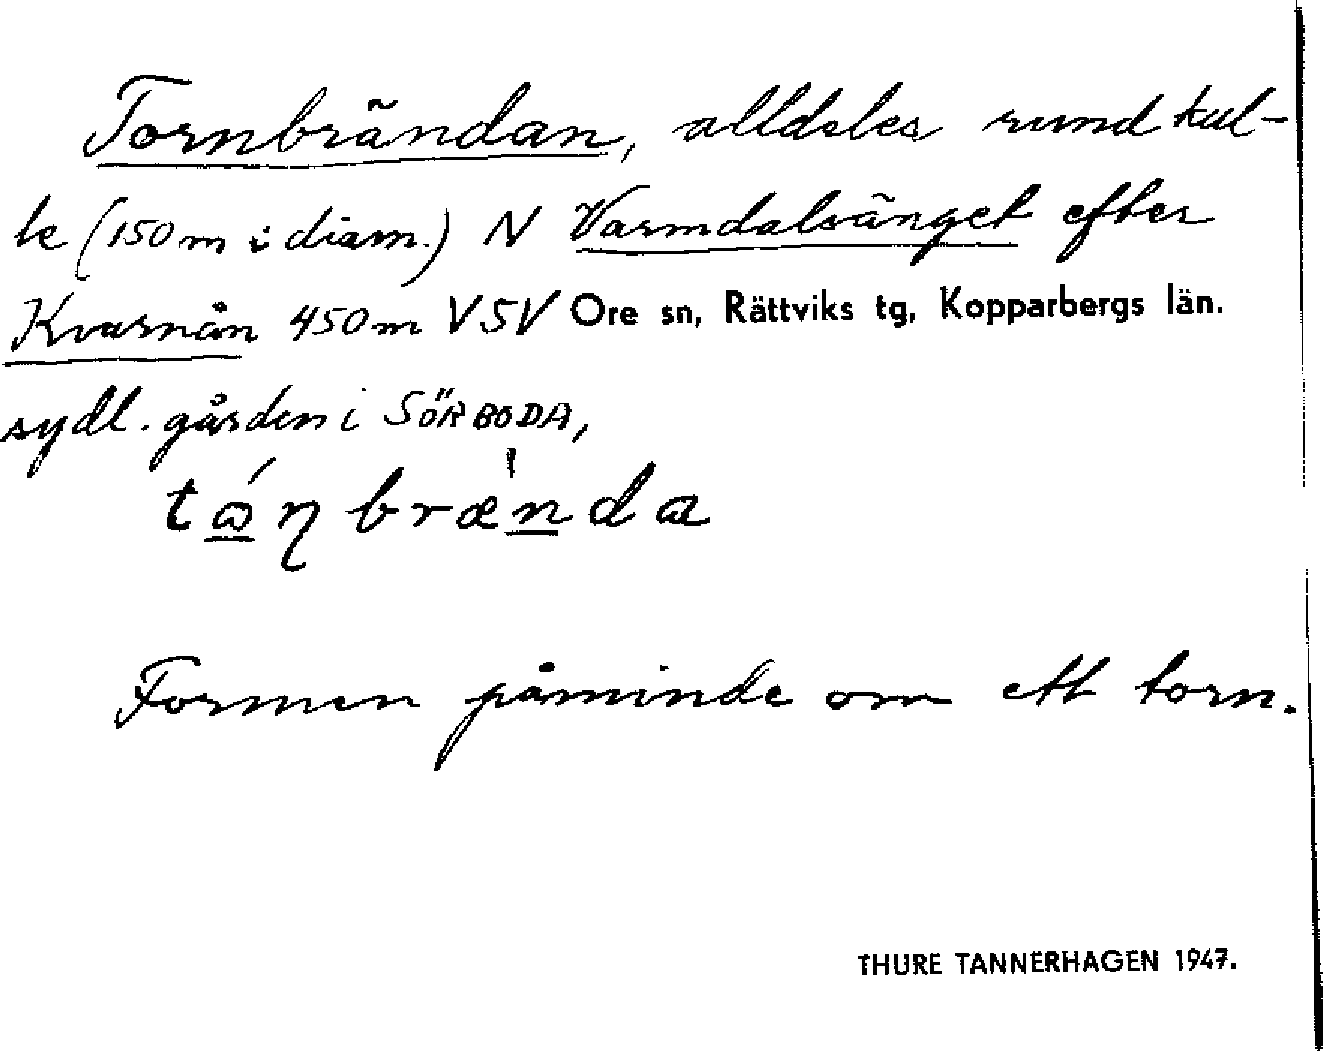 Tornbrändan, alldeles rund kul-
le (150 m i diam.) N Varmdalsänget efter
Kvarnån 450 m VSV Ore sn, Rättviks tg, Kopparbergs län.
sydl. gården i SÖRBODA,
tɷ́ŋbræ̀nda
Formen påminde om ett torn.
THURE TANNERHAGEN 1947.